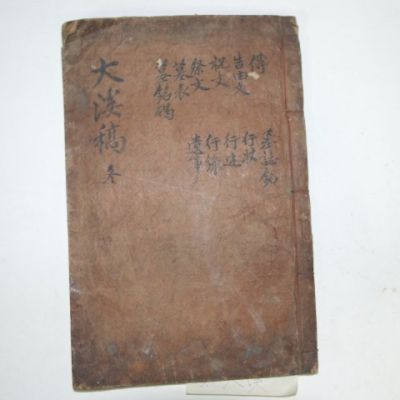 大溪稿 叅
傳
告由文
祝文
祭文
墓表
墓銘碣
墓誌銘
行狀
行述
行錄
遺事